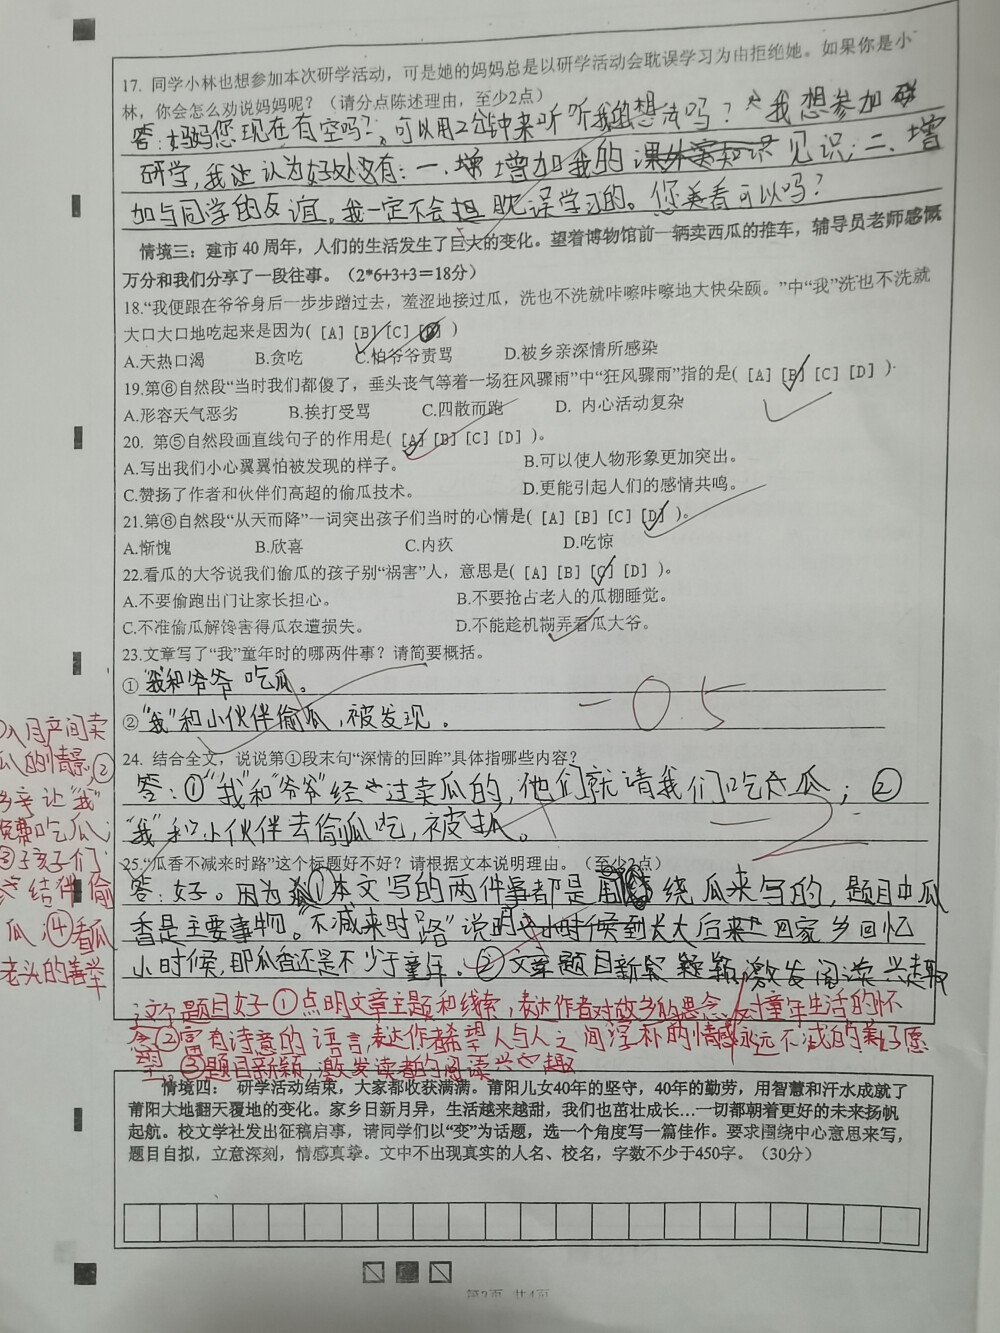 17. 同学小林也想参加本次研学活动，可是她的妈妈总是以研学活动会耽误学习为由拒绝她。如果你是小
林，你会怎么劝说妈妈呢？（请分点陈述理由，至少2点）
答：妈妈您现在有空吗？可以用2分钟来听听我的想法吗？我想参加研
研学，我认为好处没有：一、增加我的见识；二、增
加与同学的友谊。我一定不会担耽误学习的。您看可以吗？
情境三：建市 40 周年，人们的生活发生了巨大的变化。望着博物馆前一辆卖西瓜的推车，辅导员老师感慨
万分和我们分享了一段往事。（2*6+3+3＝18分）
18.“我便跟在爷爷身后一步步蹭过去，羞涩地接过瓜，洗也不洗就咔嚓咔嚓地大快朵颐。”中“我”洗也不洗就
大口大口地吃起来是因为( [A] [B] [C] [D] )
A.天热口渴 B.贪吃 C.怕爷爷责骂 D.被乡亲深情所感染
19.第⑥自然段“当时我们都傻了，垂头丧气等着一场狂风骤雨”中“狂风骤雨”指的是( [A] [B] [C] [D] )·
A.形容天气恶劣 B.挨打受骂 C.四散而跑 D. 内心活动复杂
20. 第⑤自然段画直线句子的作用是( [A] [B] [C] [D] )。
A.写出我们小心翼翼怕被发现的样子。 B.可以使人物形象更加突出。
C.赞扬了作者和伙伴们高超的偷瓜技术。 D.更能引起人们的感情共鸣。
21.第⑥自然段“从天而降”一词突出孩子们当时的心情是( [A] [B] [C] [D] )。
A.惭愧 B.欣喜 C.内疚 D.吃惊
22.看瓜的大爷说我们偷瓜的孩子别“祸害”人，意思是( [A] [B] [C] [D] )。
A.不要偷跑出门让家长担心。 B.不要抢占老人的瓜棚睡觉。
C.不准偷瓜解馋害得瓜农遭损失。 D.不能趁机糊弄看瓜大爷。
23.文章写了“我”童年时的哪两件事？请简要概括。
①“我和爷爷吃瓜。
②“我”和小伙伴偷瓜，被发现。
-0.5
24. 结合全文，说说第①段末句“深情的回眸”具体指哪些内容？
答：①“我”和“爷爷”经过卖瓜的，他们就请我们吃瓜；②
“我”和小伙伴去偷瓜吃，被抓。
-2
25.“瓜香不减来时路”这个标题好不好？请根据文本说明理由。（至少2点）
答：好。因为①本文写的两件事都是绕瓜来写的，题目中瓜
香是主要事物。“不减来时路”说明长大后回家乡回忆
小时候，那瓜香还是不少于童年。②文章题目新颖，激发阅读兴趣
瓜的情景，②
乡亲让“我”
免费吃瓜；
③孩子们
结伴偷
瓜；④看瓜
老头的善举
这个题目好①点明文章主题和线索，表达作者对故乡的思念，对童年生活的怀
念②富有诗意的语言，表达作者希望人与人之间淳朴的情感永远不减的美好愿
望。③题目新颖，激发读者的阅读兴趣
情境四： 研学活动结束，大家都收获满满。莆阳儿女40年的坚守，40年的勤劳，用智慧和汗水成就了
莆阳大地翻天覆地的变化。家乡日新月异，生活越来越甜，我们也茁壮成长…一切都朝着更好的未来扬帆
起航。校文学社发出征稿启事，请同学们以“变”为话题，选一个角度写一篇佳作。要求围绕中心意思来写，
题目自拟，立意深刻，情感真挚。文中不出现真实的人名、校名，字数不少于450字。（30分）
第3页 共4页